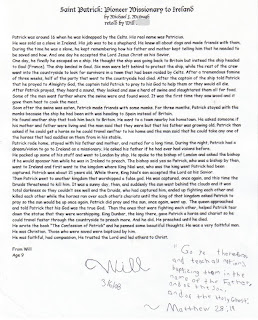 Saint Patrick: Pioneer Missionary to Ireland
by Michael J. McHugh
retold by Will
Patrick was around 16 when he was kidnapped by the Celts. His real name was Patricius.
He was sold as a slave in Ireland. His job was to be a shepherd. He knew all about dogs and made friends with them.
During the time he was a slave, he kept remembering how his father and mother kept telling him that he needed to
be saved and how. And one day he accepted the Lord Jesus Christ as his Savior.
One day, he finally he escaped on a ship. He thought the ship was going back to Britain but instead the ship headed
to Gaul (France). The ship landed in Gaul. Six men were left behind to protect the ship, while the rest of the crew
went into the countryside to look for survivors in a town that had been raided by Celts. After a tremendous famine
of three weeks, half of the party that went to the countryside had died. After the captain of the ship told Patrick
that he prayed to Allegato God, the captain told Patrick to pray to his God to help them or they would all die.
After Patrick prayed, they heard a sound, they looked and saw a herd of swine and slaughtered them all for food.
Some of the men went farther where the swine were and found wood. It was the first time they saw wood and it
gave them heat to cook the meat.
Soon after the swine was eaten, Patrick made friends with some monks. For three months, Patrick stayed with the
monks because the ship he had been with was heading to Spain instead of Britain.
He found another ship that took him back to Britain. He went to a town nearby his hometown. He asked someone if
his mother and father were living and the man said that they were but that his father was growing old. Patrick then
asked if he could get a horse so he could travel swifter to his home and the man said that he could take any one of
the horses that had saddles on them from in his stable.
Patrick rode home, stayed with his father and mother, and rested for a long time. During the night, Patrick had a
dream/vision to go to Ireland as a missionary. He asked his father if he had ever had visions before.
He packed up some of his stuff and went to London by ship. He spoke to the bishop of London and asked the bishop
if he would sponsor him while he was in Ireland to preach. The bishop said yes so Patrick, who was a bishop by then,
went to Ireland and first went to the kingdom of King Niall, who was the king when Patrick had been
captured. Patrick was about 31 years old. While there, King Niall's son accepted the Lord as his Savior.
Then Patrick went to another kingdom that worshipped a false god. He was captured, once again, and this time the
Druids threatened to kill him. It was a sunny day, then, and suddenly the sun went behind the clouds and it was
total darkness so they couldn't see well and the Druids, who had captured him, ended up fighting each other and
killed each other while the horses ran over each other's chariots until the king of that kingdom asked Patrick to
pray so the sun would be up once again. Patrick did pray and the sun, once again, went up. The queen approached
and told Patrick that his God was the true God. Then the ones that were fighting each other, helped Patrick tear
down the statue that they were worshipping. King Dunbar, the king there, gave Patrick a horse and chariot so he
could travel faster through the countryside to preach more. And he did. He preached until he died.
He wrote the book "The Confession of Patrick" and he penned some beautiful thoughts. He was a very faithful man.
He was Christian. Those who were saved were baptized by him.
He was faithful, had compassion, He trusted the Lord and led others to Christ.
From Will
Age 9
Go ye therefore
and teach all nations,
baptizing them in the
name of the Father,
and of the Son,
and of the Holy Ghost.
Matthew 28:19